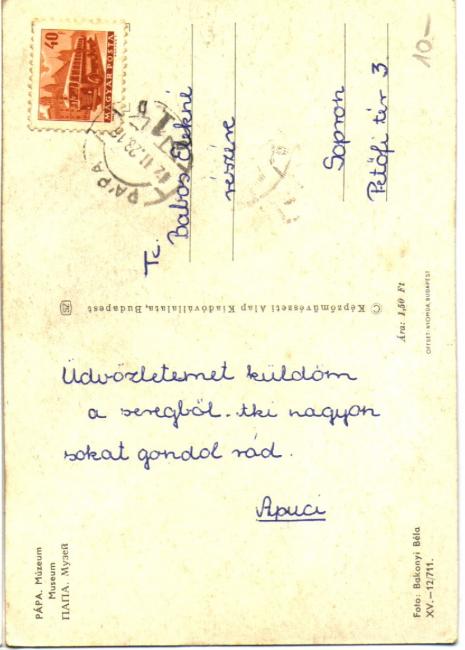 40
MAGYAR POSTA
PÁPA
10—
Tc. Babos Elekné
részére
Sopron
Petőfi tér 3
© Képzőművészeti Alap Kiadóvállalata, Budapest
Ára: 1,50 Ft
OFFSET NYOMDA BUDAPEST
Üdvözletemet küldöm
a seregből. Aki nagyon
sokat gondol rád.
Apuci
PÁPA. Múzeum
Museum
ПАПА. Музей
Foto: Bakonyi Béla
XV.—12/711.